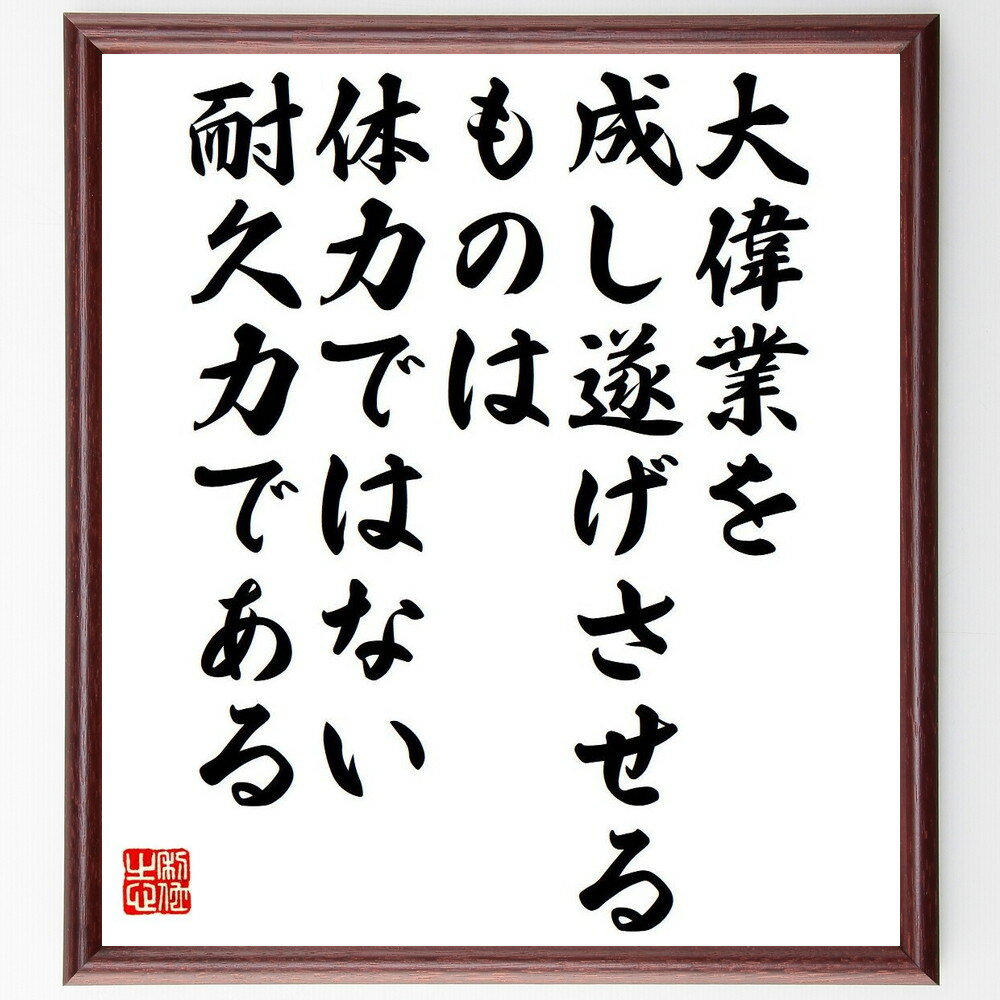 大偉業を
成し遂げさせる
ものは
体力ではない
耐久力である